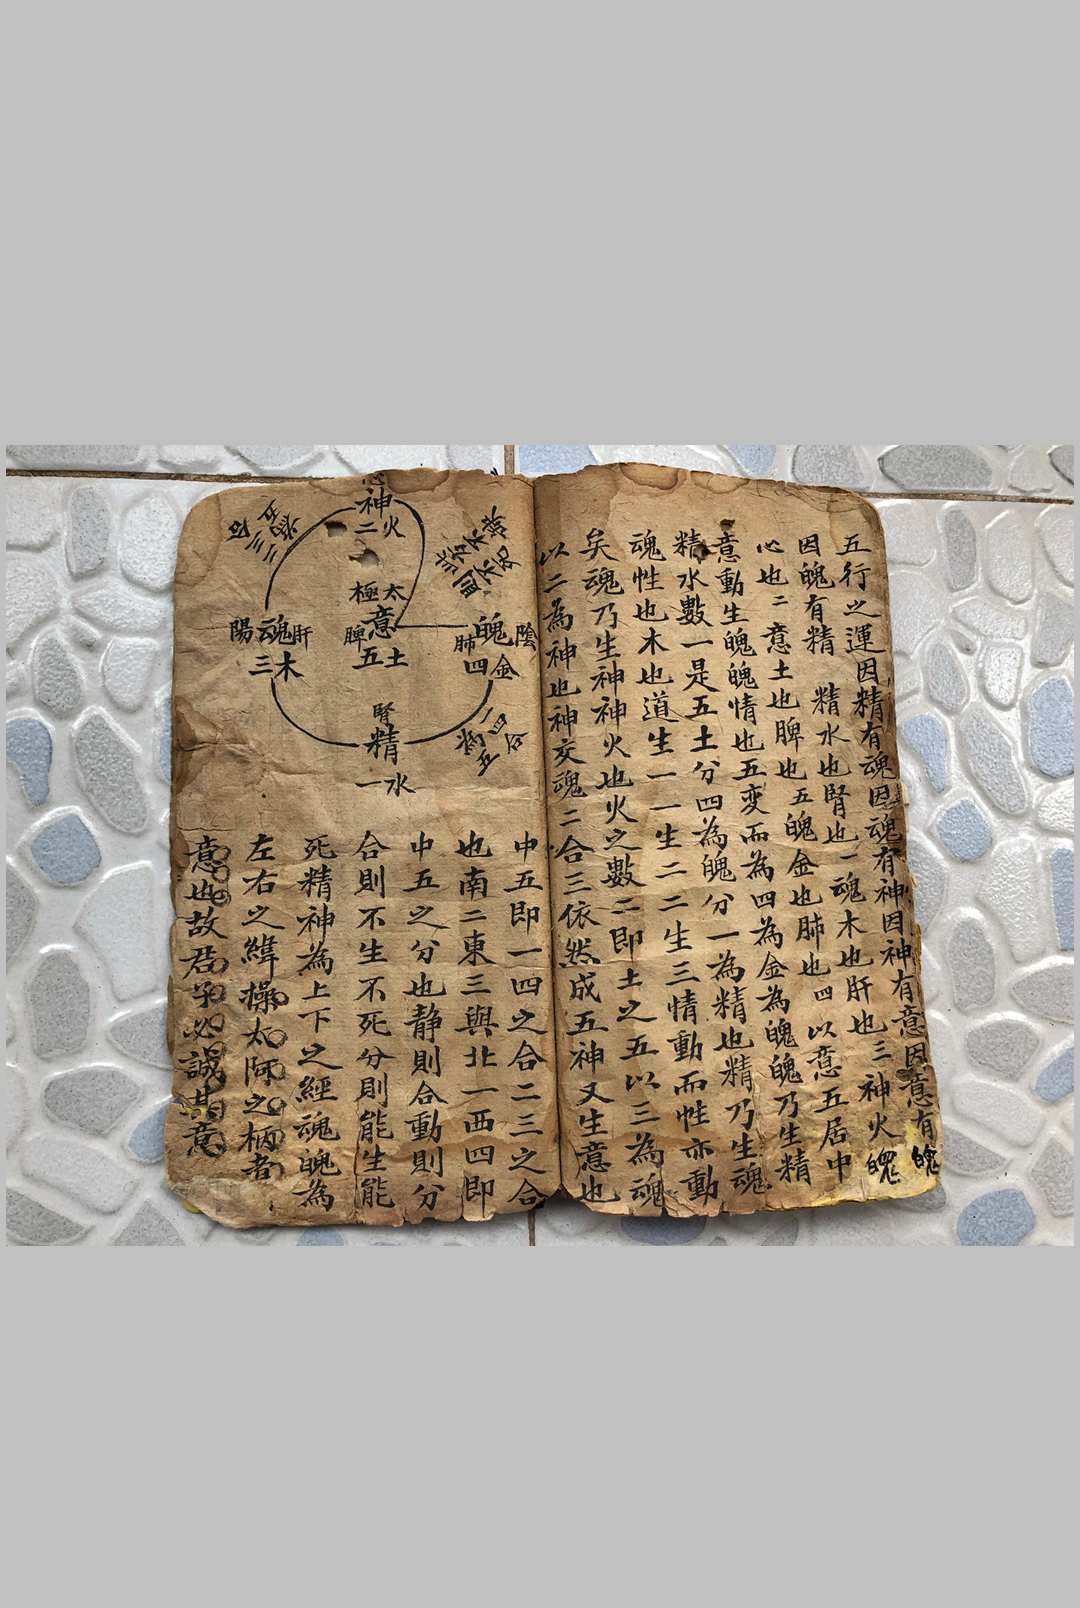 五行之運因精有魂因魂有神因神有意因意有魄
因魄有精 精水也腎也一魂木也肝也三神火魄
心也二意土也脾也五魄金也肺也四 以意五居中
意動生魄魄情也五変而為四為金為魄魄乃生精
精水數一是五土分四為魄分一為精也精乃生魂
魂性也木也道生一一生二二生三情動而性亦動
矣魂乃生神神火也火之數二即土之五以三為魂
以二為神也神交魂二合三依然成五神又生意也
神
火二
太極
意
脾
土五
陰魄肺
金四
肝魂陽
木三
腎
精
水一
中五即一四之合二三之合
也南二東三與北一西四即
中五之分也静則合動則分
合則不生不死分則能生能
死精神為上下之經魂魄為
左右之緯操太阿之柄者
意也故君子必誠其意